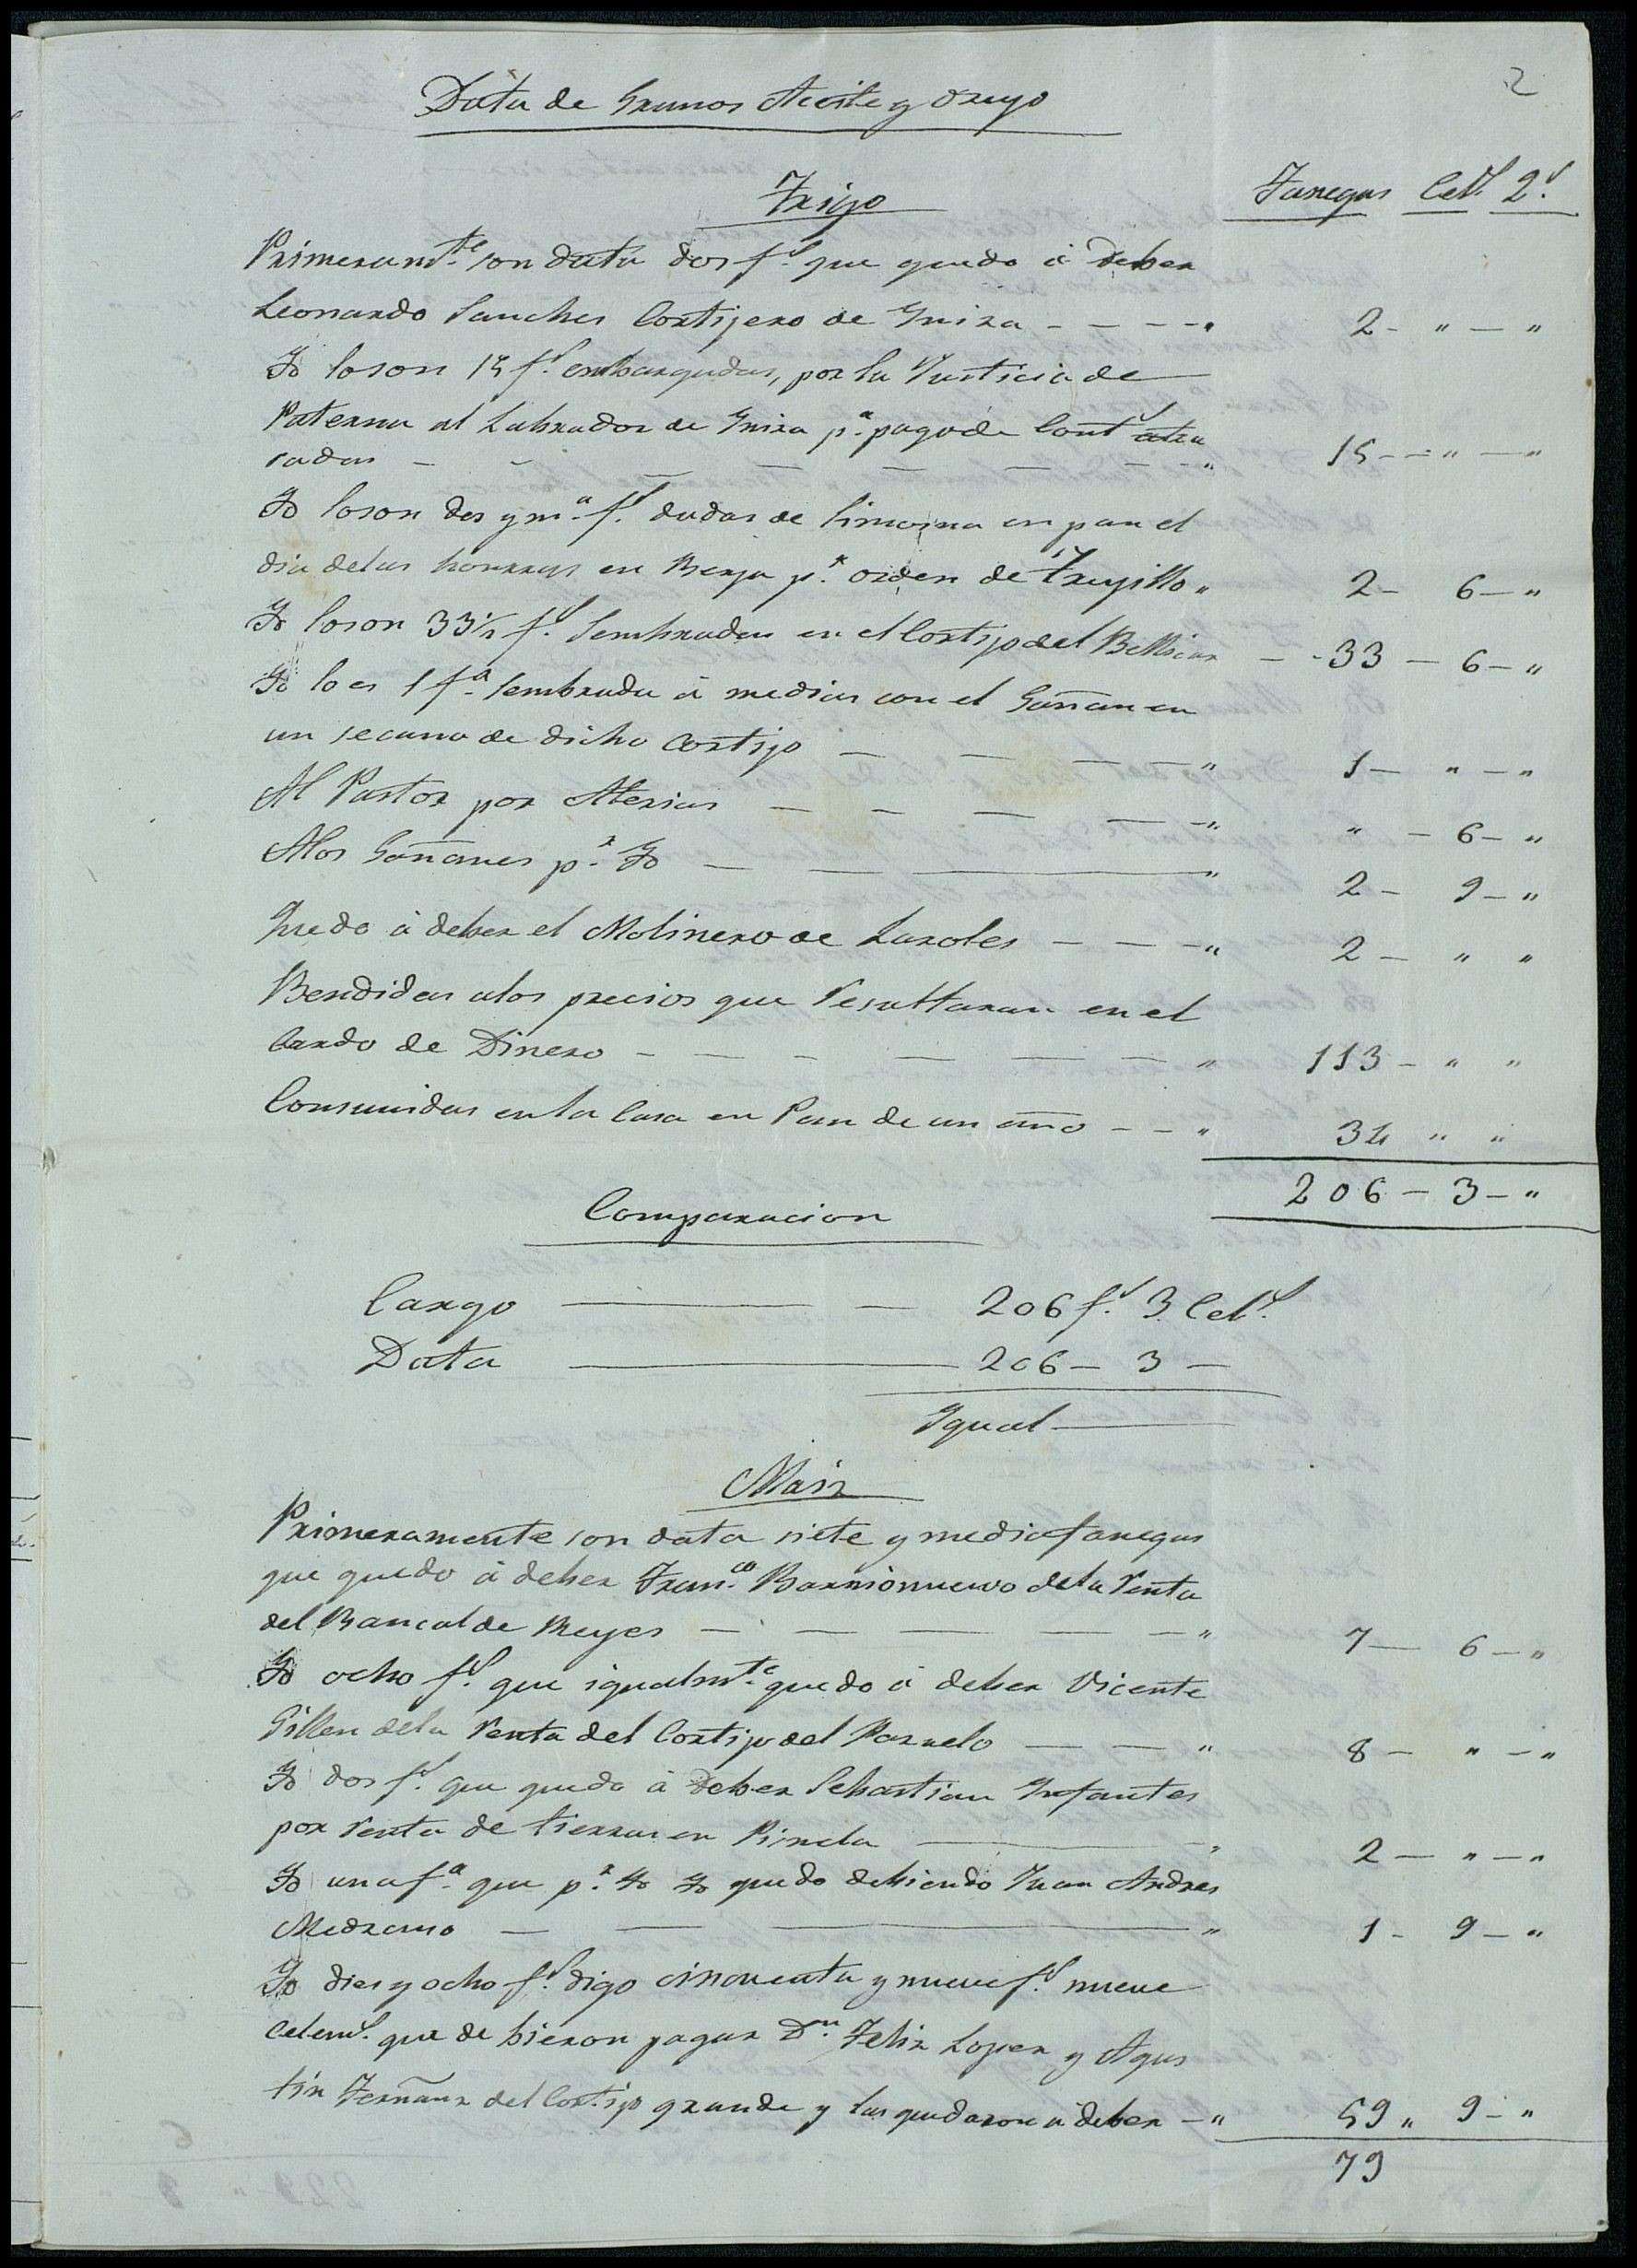 2
Data de Granos Aceite y Orujo
Trigo
Fanegas Cels. 2s.
Primeramte. son data dos fs. que quedo á deber
Leonardo Sanches Cortijero de Guiza - - - - " 2 - " - "
Yd loson 15 fs. embargadas, por la Justicia de
Paterna al Labrador de Guiza pa. pago de Conts atra
sadas - - - - - - - " 15 - - " - "
Yd loson dos y ma. fs. dadas de limosna en pan el
dia delas honrras en Berja pr. orden de Trujillo " 2 - 6 - "
Yd loson 33 1/2 fs. Sembradas en el Cortijo del - - 33 - 6 - "
Yd lo es 1 fa. sembrada á medias con el Gañan en
un secano de dicho Cortijo - - - - " 1 - " - "
Al Pastor por Aterias - - - - - " " - 6 - "
Alos Gañanes pr. Yd - - - " 2 - 9 - "
Quedo á deber el Molinero de Laroles - - - " 2 - " "
Bendidas alos precios que Resultaran en el
Cardo de Dinero - - - - - - " 113 - " "
Consumidas en la Casa en Pan de un año - - " 34 " "
206 - 3 - "
Comparacion
Cargo - - 206 fs. 3 Cels.
Data - 206 - 3 -
Ygual -
Mais
Primeramente son data siete y media fanegas
que quedo á deber Franco. Barrionuevo dela Renta
del Bancal de Reyes - - - - - " 7 - 6 - "
Yd ocho fs. que igualmte. quedo á deber Vicente
Gillen dela Renta del Cortijo del Pozuelo - - " 8 - " - "
Yd dos fs. que quedo á Deber Sebastian Ynfantes
por Renta de tierras en Pinela - - " 2 - " - "
Yd una fa. que pr. Yd Yd quedo debiendo Juan Andres
Medrano - - - " 1 - 9 - "
Yd dies y ocho fs. digo cincuenta y nueve fs. nueve
celems. que de bieron pagar Dn. Felix Lopez y Agus
tin Fernanz del Cortijo grande y las quedaron á deber - " 59 " 9 - "
79